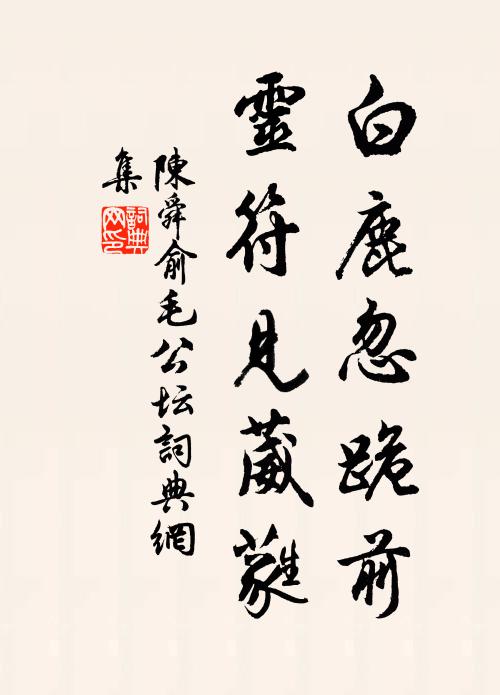 白鹿忽跪前
靈符見葳蕤
陳舜俞毛公坛詞典網
集
詞典网印